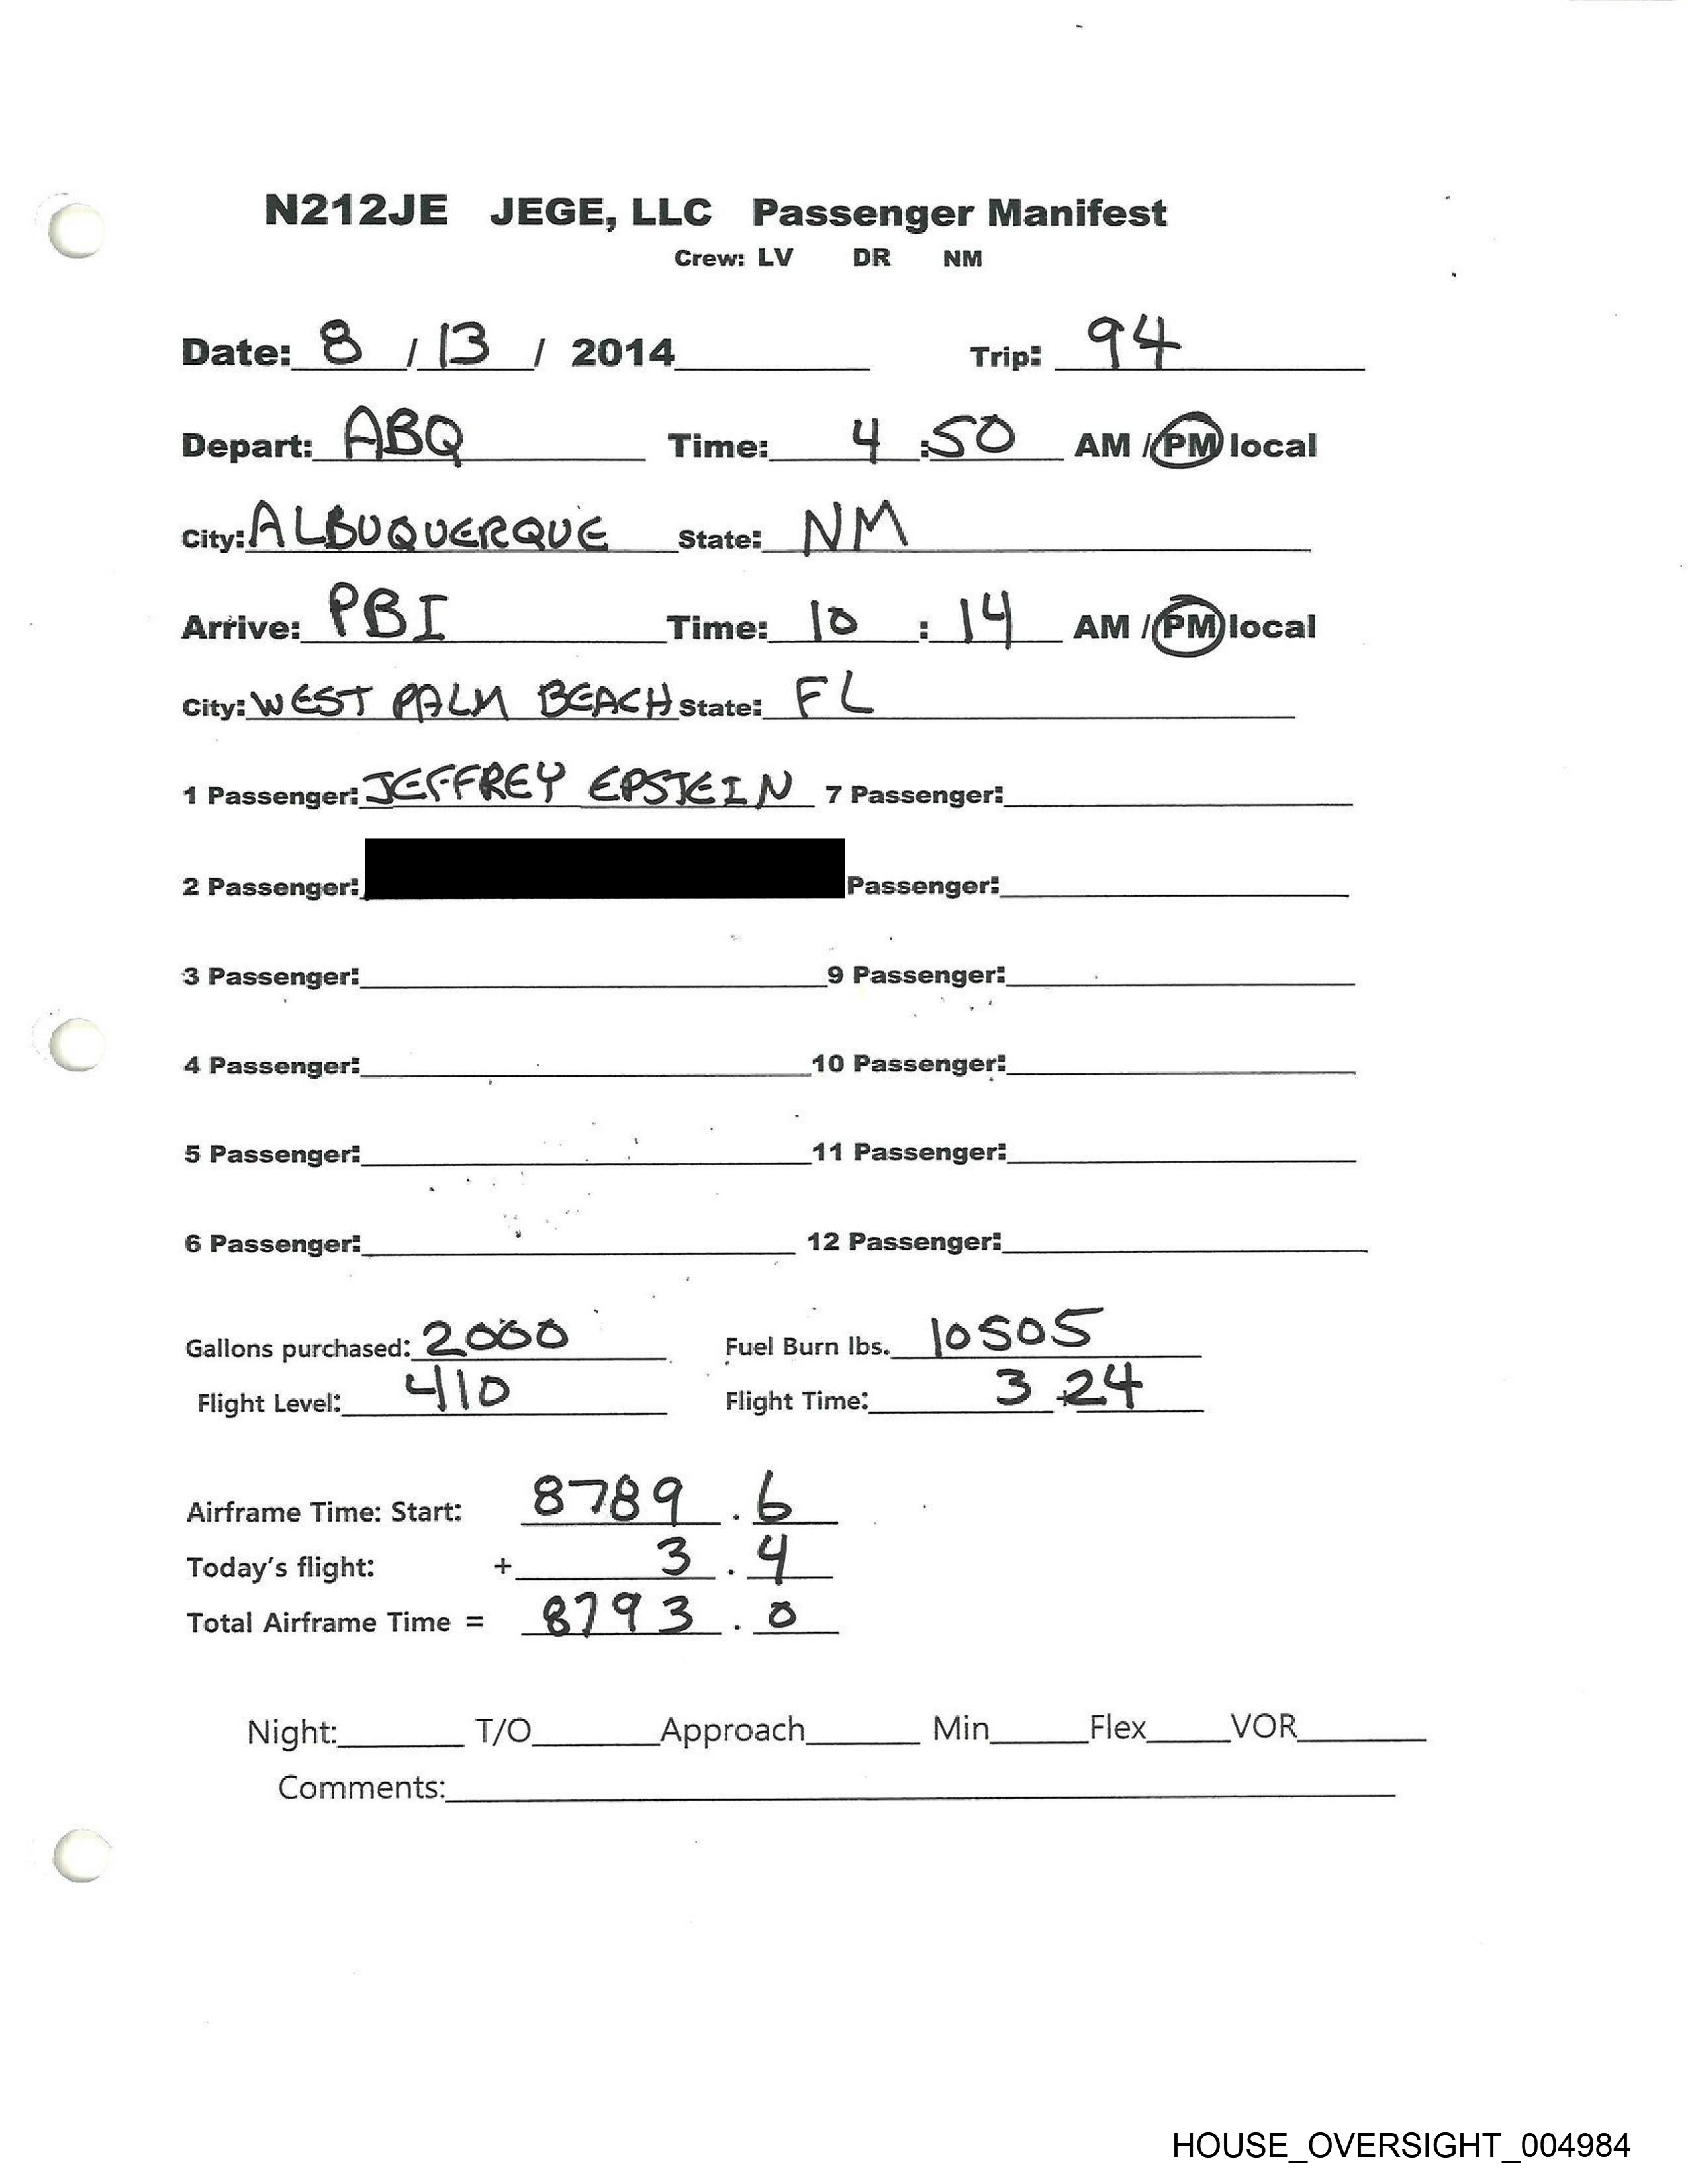 N212JE JEGE, LLC Passenger Manifest
Crew: LV DR NM
Date: 8 / 13 / 2014 Trip: 94
Depart: ABQ Time: 4 :50 AM / PM local
City: ALBUQUERQUE State: NM
Arrive: PBI Time: 10 : 14 AM / PM local
City: WEST PALM BEACH State: FL
1 Passenger: JEFFREY EPSTEIN 7 Passenger:
2 Passenger: Passenger:
3 Passenger: 9 Passenger:
4 Passenger: 10 Passenger:
5 Passenger: 11 Passenger:
6 Passenger: 12 Passenger:
Gallons purchased: 2000 Fuel Burn lbs. 10505
Flight Level: 410 Flight Time: 3 + 24
Airframe Time: Start: 8789 . 6
Today's flight: + 3 . 4
Total Airframe Time = 8793 . 0
Night: T/O Approach Min Flex VOR
Comments:
HOUSE_OVERSIGHT_004984